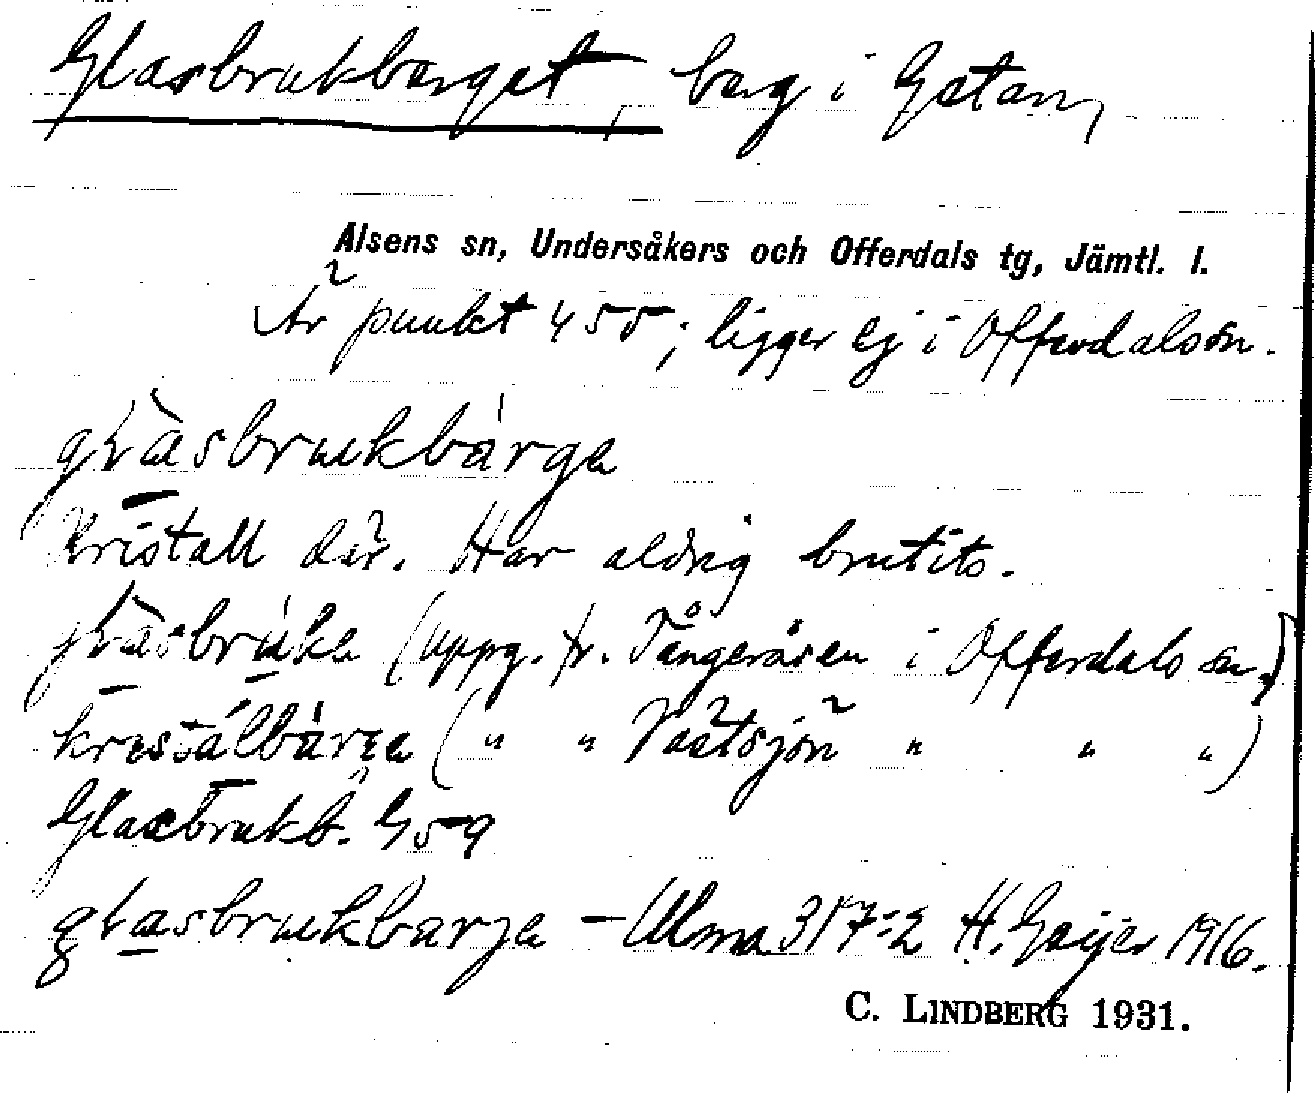 Glasbrukberget, berg i Getan,
Alsens sn, Undersåkers och Offerdals tg, Jämtl. l.
Är punkt 455; ligger ej i Offerdals sn.
glàsbrukbárga
Kristall där. Har aldrig brutits.
glàsbruka (uppg. fr. Tångeråsen i Offerdals sn.)
krestálbárga ( " " Västsjön " " " )
Glasbrukb. G 59
glasbrukbarja – Ulma 317:2 H. Geijer 1916.
C. LINDBERG 1931.